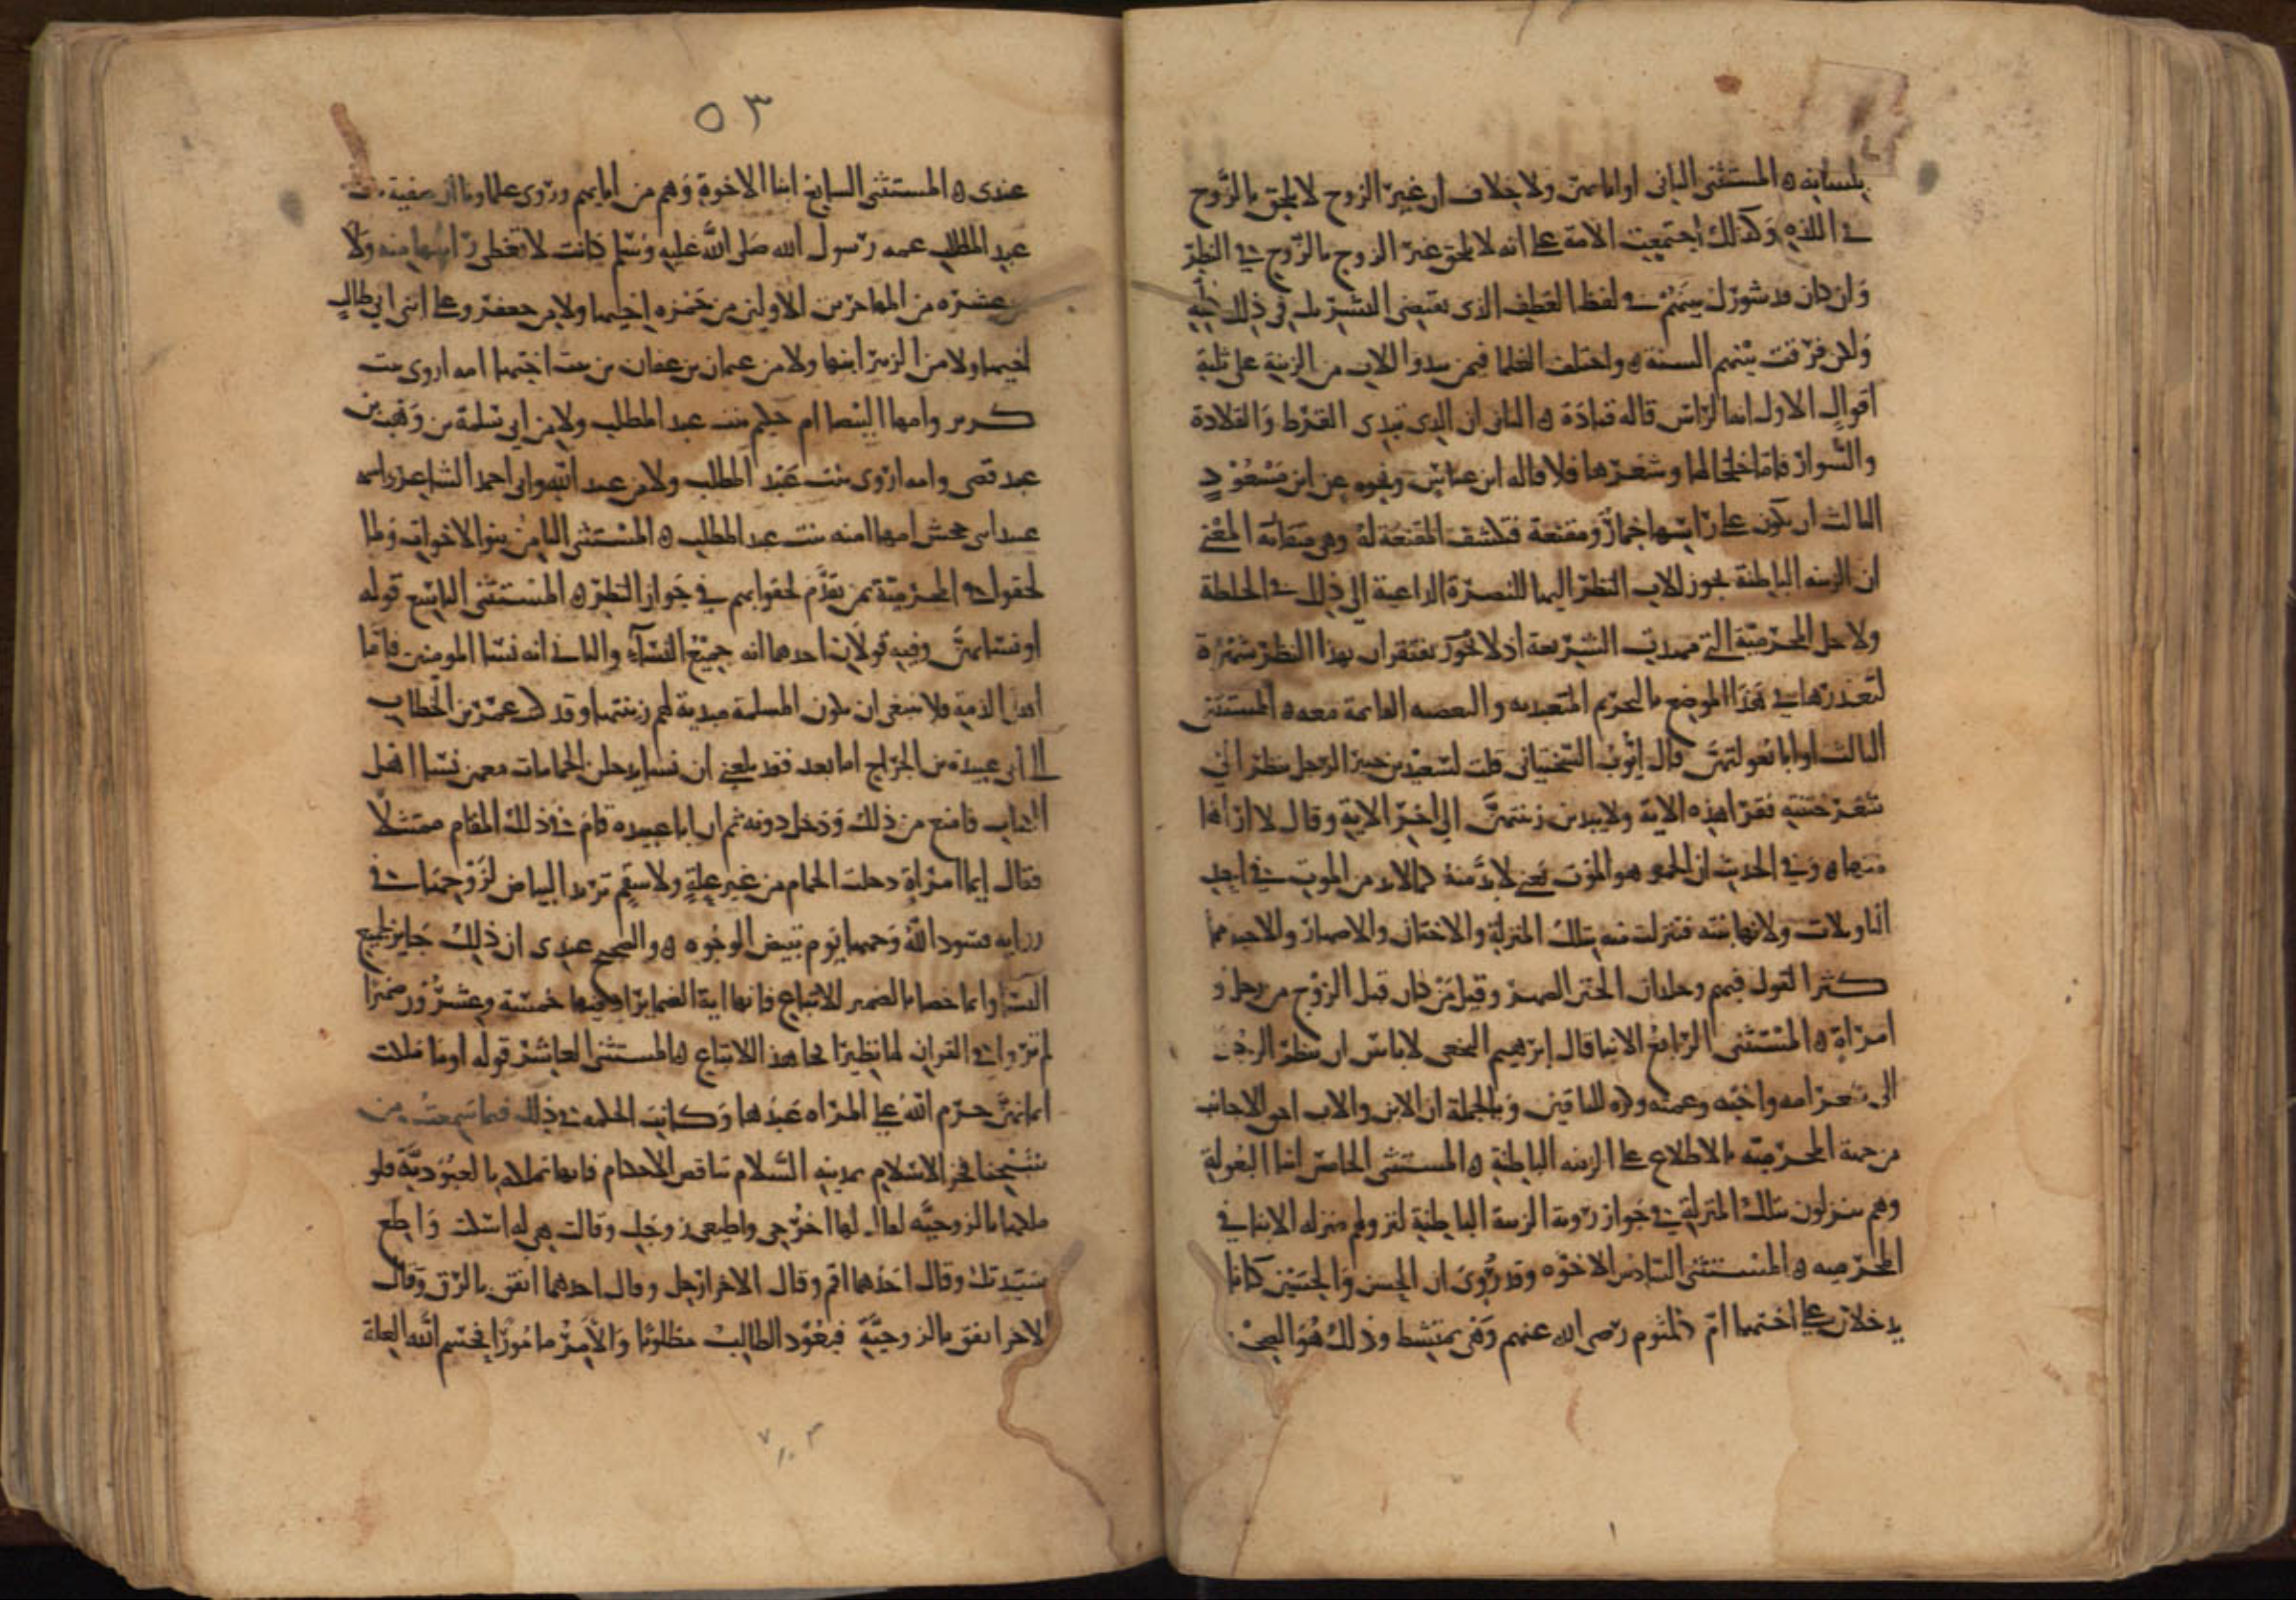 بلسانه ه المستثنى الثاني او ابائهن ولا خلاف ان غير الزوج لا يلحق بالزوج
في اللذه وكذلك اجتمعت الامة على انه لا يلحق غير الزوج بالزوج في النظر
وان كان قد شورك بينهم في لفظ العطف الذي يقتضي التشريك في ذلك كله
ولكن فرقت بينهم السنة ه واختلف العلما فيمن يبدو للاب من الزينة على ثلثة
اقوال الاول انها الراس قاله قتادة ه الثاني ان الذي تبدى القرط والقلادة
والسوار فاما خلخالها وشعرها فلا قاله ابن عباس ونحوه عن ابن مسعود
الثالث ان يكون على راسها خمار ومقنعة فتكشف المقنعة له وهي متقاربة المعنى
ان الزينه الباطنة يجوز للاب النظر اليها للضرورة الداعية الى ذلك في الخلطة
ولاجل المحرمية التي مهدت الشريعة اذ لا يجوز يقترن بهذا النظر شهوة
لتعذرها في هذا الموضع بالتحريم المتعبد به والبعضيه القائمة معه ه المستثنى
الثالث او ابا بعولتهن قال ايوب السختياني قلت لسعيد بن جبير الرجل ينظر الى
شعر ختنته فقرا هذه الاية ولا يبدين زينتهن الى اخر الاية وقال لا اراها
منها ه وفي الحديث ان الحمو هو الموت يعني لا بد منه كما لا بد من الموت في احد
التاويلات ولانها بنته فتنزلت منه بتلك المنزلة والاختان والاصهار والاحمه مما
كثر القول فيهم وخلاف الختن الصهر وقيل من كان قبل الزوج من رجل و
امراة ه المستثنى الرابع الابنا قال ابرهيم النخعي لا باس ان ينظر الرجل
الى شعر امه واخته وعمته وكره للساقين وبالجملة ان الابن والاب احق الاجانب
من جهة المحرمية بالاطلاع على الزينه الباطنة ه المستثنى الخامس ابنا البعولة
وهم ينزلون بتلك المنزلة في جواز روية الزينة الباطنة لنزولهم منزله الابنا في
المحرميه ه المستثنى السادس الاخوه وقد روى ان الحسن والحسين كانا
يدخلان على اختهما ام كلثوم رضى الله عنهم وهي تمتشط وذلك هو الصحيح
٥٣
عندى ه المستثنى السابع ابنا الاخوة وهم من ابايهم وروى علماونا ان صفية بنت
عبد المطلب عمه رسول الله صلى الله عليه وسلم كانت لا تغطى راسها منه ولا
من عشرة من المهاجرين الاولين من حمزه اخيها ولا من جعفر وعلى ابنى ابي طالب
اخيها ولا من الزبير ابنها ولا من عثمان بن عفان بن بنت اختها امه اروى بنت
كريز وامها البيضا ام حكيم بنت عبد المطلب ولا من ابي سلمة بن وهب بن
عبد قصى وامه اروى بنت عبد المطلب ولا من عبد الله وابى احمد الشاعر واسمه
عبد ابنى جحش امهما اميمه بنت عبد المطلب ه المستثنى الثامن بنو الاخوات ولما
لحقوا في المحرمية بمن تقدم لحقوا بهم في جواز النظر ه المستثنى التاسع قوله
او نسائهن وفيه قولان احدهما انه جميع النساء والثاني انه نسا المومنين فاما
اهل الذمة فلا ينبغى ان تكون المسلمة مبدية لهم زينتها وقد كتب عمر بن الخطاب
الى ابى عبيدة بن الجراح اما بعد فقد بلغني ان نسا يدخلن الحمامات معهن نسا اهل
الكتاب فامنع من ذلك وحل دونه ثم ان ابا عبيده قام في ذلك المقام ممتثلا
فقال ايما امراة دخلت الحمام من غير علة ولا سقم تريد البياض لزوجها
فسود الله وجهها يوم تبيض الوجوه ه والصحيح عندى ان ذلك جايز لجميع
النسا وانما خصها بالضمير للاتباع فانها اية الضماير اذ فيها خمسة وعشرون ضميرا
لم تروا في القران لها نظيرا فجا هذا للاتباع ه المستثنى العاشر قوله او ما ملكت
ايمانهن حرم الله على المراه عبدها وكانت الحكمه في ذلك فيما سمعت من
شيخنا فخر الاسلام بمدينه السلام تناقض الاحكام فانها تملكه بالعبودية فلو
ملكها بالزوجية لقال لها اخرجى واطيعى زوجك وقالت هي له اسكت واطع
سيدتك وقال احدهما اقم وقال الاخر ارحل وقال احدهما انفق بالرق وقال
الاخر انفق بالزوجية فيعود الطالب مطلوبا والامر مامورا فحسم الله العلة